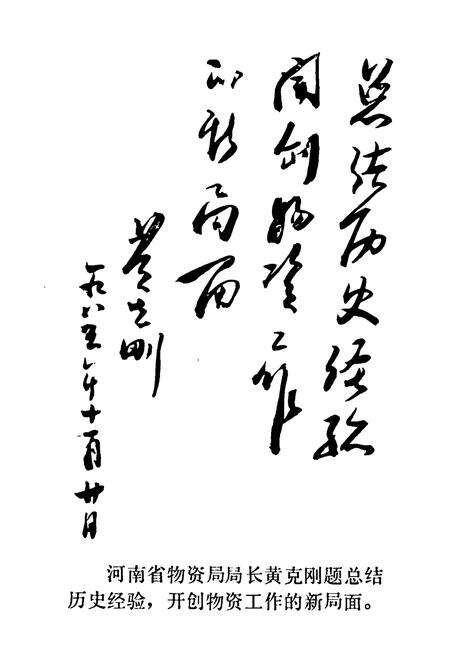 总结历史经验
开创物资工作
的新局面
黄克刚
一九八五年十一月廿日
河南省物资局局长黄克刚题总结
历史经验，开创物资工作的新局面。